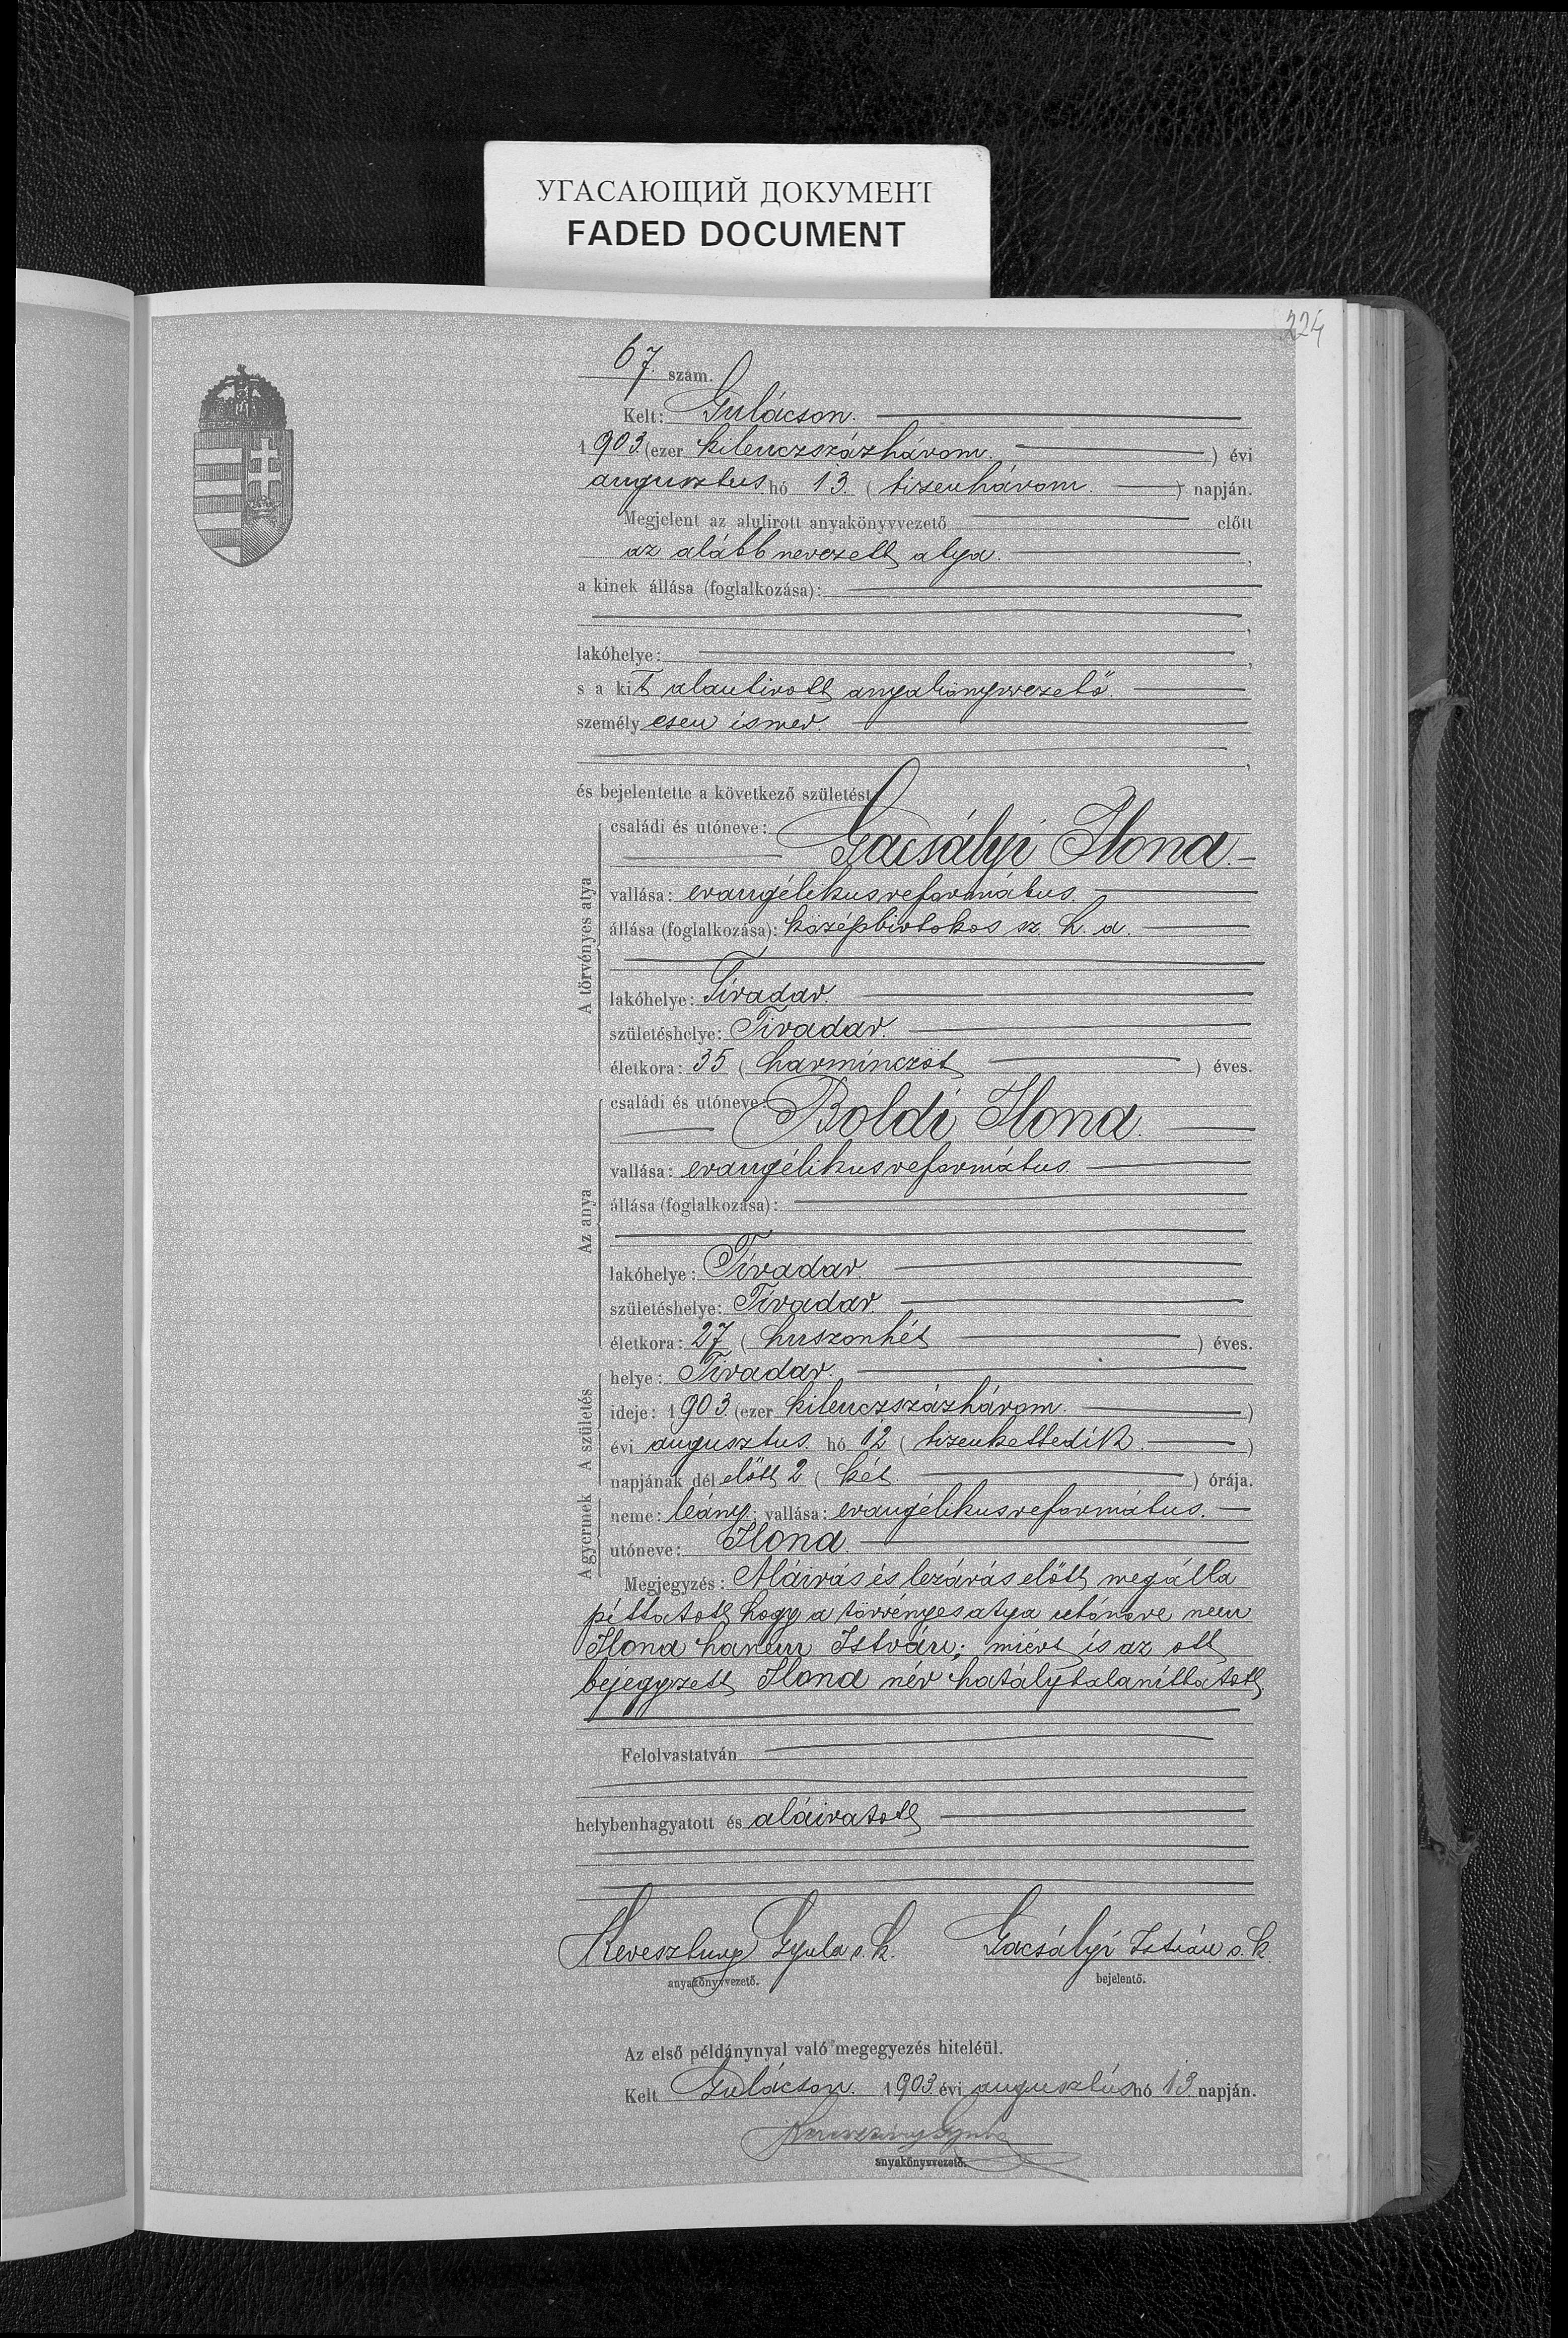 УГАСАЮЩИЙ ДОКУМЕНТ
FADED DOCUMENT
224
67. szám.
Kelt: Gulácson.
1903. (ezer kilenczszázhárom. ) évi
augusztus hó 13. ( tizenhárom. ) napján.
Megjelent az alulirott anyakönyvvezető előtt
az alább nevezett atya. ,
a kinek állása (foglalkozása):
,
lakóhelye: ,
s a kit alantirott anyakönyvvezető.
személyesen ismer.
,
és bejelentette a következő születést:
A törvényes atya
családi és utóneve: Gacsályi Ilona.
vallása: evangélikusreformátus.
állása (foglalkozása): középbirtokos sz. h. a.
lakóhelye: Tivadar.
születéshelye: Tivadar.
életkora: 35 ( harminczöt ) éves.
Az anya
családi és utóneve: Boldi Ilona.
vallása: evangélikusreformátus.
állása (foglalkozása):
lakóhelye: Tivadar.
születéshelye: Tivadar.
életkora: 27 ( huszonhét ) éves.
A születés
helye: Tivadar.
ideje: 1903. (ezer kilenczszázhárom. )
évi augusztus hó 12 ( tizenkettedik. )
napjának dél előtt 2 ( két. ) órája.
A gyermek
neme: leány; vallása: evangélikusreformátus.
utóneve: Ilona.
Megjegyzés: Aláirás és lezárás előtt megálla
pittatott hogy a törvényes atya utóneve nem
Ilona hanem István; miért is az ott
bejegyzett Ilona név hatálytalaníttatott
Felolvastatván
helybenhagyatott és aláiratott
Keresztury Gyula s. k. Gacsályi István s. k.
anyakönyvvezető. bejelentő.
Az első példánynyal való megegyezés hiteléül.
Kelt Gulácson. 1903. évi augusztus hó 13. napján.
Keresztury Gyula
anyakönyvvezető.